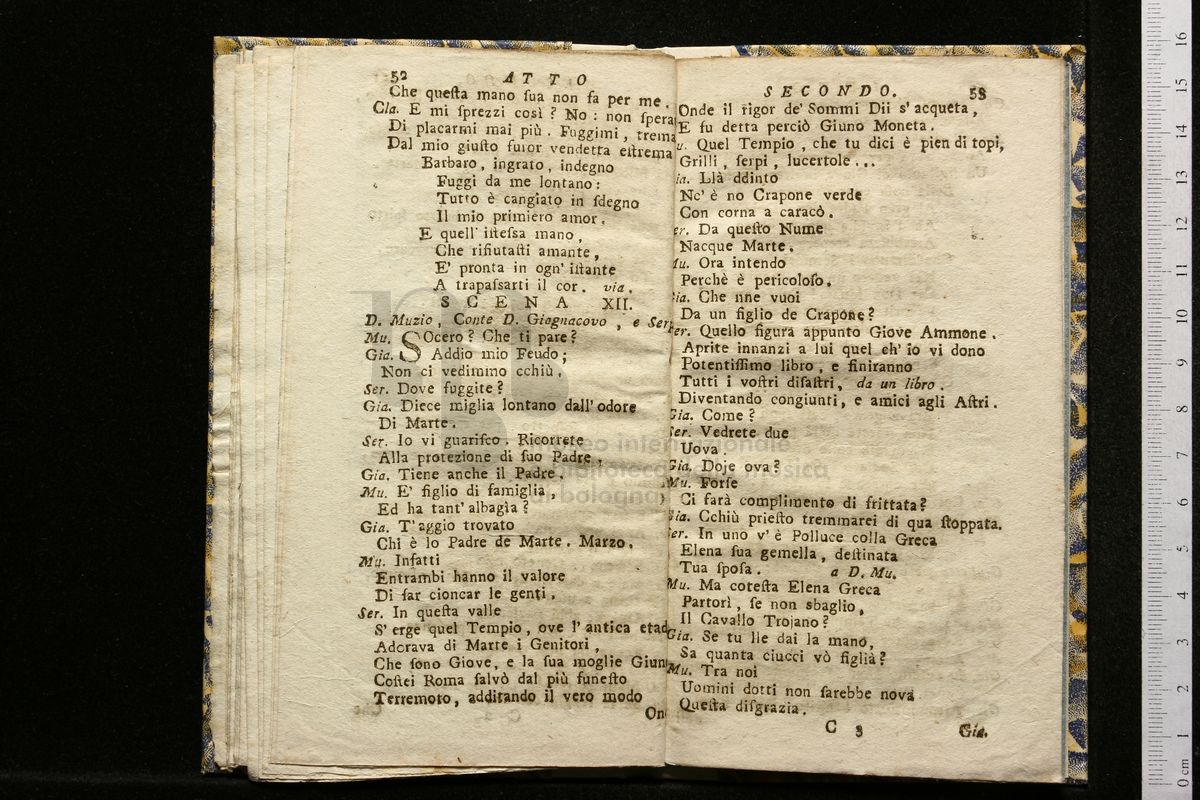 52 ATTO
Che queſta mano ſua non fa per me.
Cla. E mi ſprezzi così? No: non ſpera
Di placarmi mai più. Fuggimi, trema
Dal mio giuſto furor vendetta eſtrema
Barbaro, ingrato, indegno
Fuggi da me lontano:
Tutto è cangiato in ſdegno
Il mio primiero amor.
E quell' iſteſsa mano,
Che rifiutaſti amante,
E' pronta in ogn' iſtante
A trapaſsarti il cor. via.
SCENA XII.
D. Muzio, Conte D. Giagnacovo, e Ser
Mu. SOcero? Che ti pare?
Gia. Addio mio Feudo;
Non ci vedimmo cchiù.
Ser. Dove fuggite?
Gia. Diece miglia lontano dall' odore
Di Marte.
Ser. Io vi guariſco. Ricorrete
Alla protezione di ſuo Padre.
Gia. Tiene anche il Padre.
Mu. E' figlio di famiglia,
Ed ha tant' albagìa?
Gia. T' aggio trovato
Chi è lo Padre de Marte. Marzo.
Mu. Infatti
Entrambi hanno il valore
Di far cioncar le genti.
Ser. In queſta valle
S' erge quel Tempio, ove l' antica etad
Adorava di Marte i Genitori,
Che ſono Giove, e la ſua moglie Giun
Coſtei Roma ſalvò dal più funeſto
Terremoto, additando il vero modo
On
SECONDO. 53
Onde il rigor de' Sommi Dii s' acqueta,
E fu detta perciò Giuno Moneta.
u. Quel Tempio, che tu dici è pien di topi,
Grilli, ſerpi, lucertole...
ia. Llà ddinto
Nc' è no Crapone verde
Con corna a caracò.
er. Da queſto Nume
Nacque Marte.
Mu. Ora intendo
Perchè è pericoloſo.
Gia. Che nne vuoi
Da un figlio de Crapone?
Ser. Quello figura appunto Giove Ammone.
Aprite innanzi a lui quel ch' io vi dono
Potentiſſimo libro, e finiranno
Tutti i voſtri diſaſtri, da un libro.
Diventando congiunti, e amici agli Aſtri.
Gia. Come?
Ser. Vedrete due
Uova.
Gia. Doje ova?
Mu. Forſe
Ci farà complimento di frittata?
Gia. Cchiù prieſto tremmarei di qua ſtoppata.
Ser. In uno v' è Polluce colla Greca
Elena ſua gemella, deſtinata
Tua ſpoſa. a D. Mu.
Mu. Ma coteſta Elena Greca
Partorì, ſe non sbaglio,
Il Cavallo Trojano?
Gia. Se tu lle dai la mano,
Sa quanta ciucci vò figlià?
Mu. Tra noi
Uomini dotti non ſarebbe nova
Queſta diſgrazia.
C 3 Gia.
museo internazionale
e biblioteca della musica
di bologna
16
15
14
13
12
11
10
9
8
7
6
5
4
3
2
1
0 cm